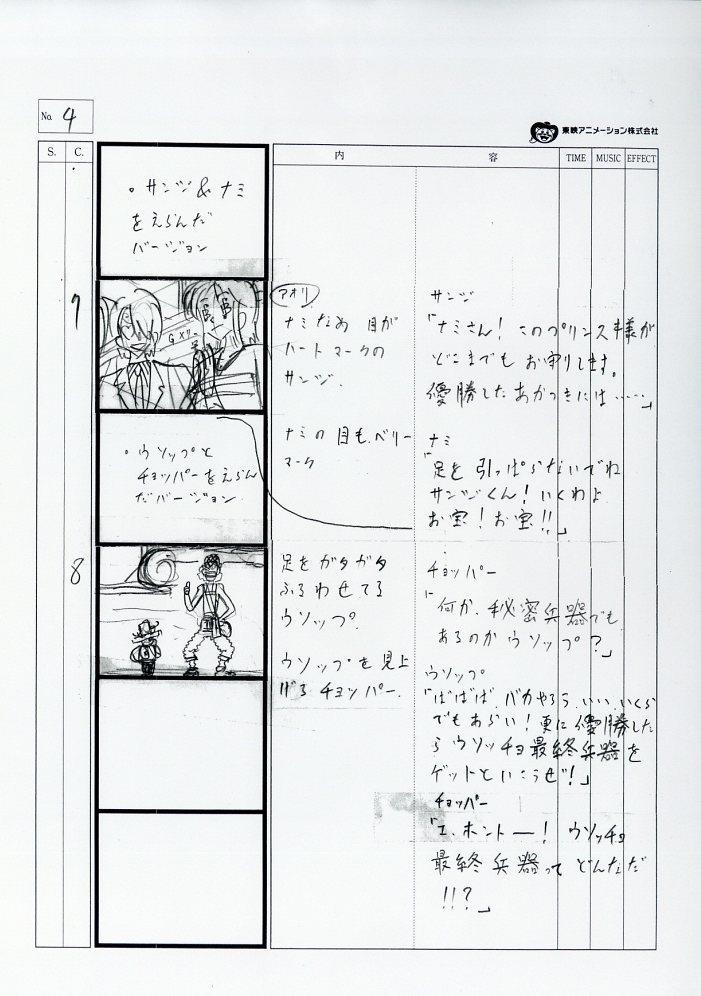 No. 4
東映アニメーション株式会社
S. C. 内 容 TIME MUSIC EFFECT
・サンジ&ナミ
をえらんだ
バージョン
7
アオリ
ナミ
目が
ハートマークの
サンジ.
ナミの目も、ベリー
マーク
サンジ
「ナミさん！このプリンス様が
どこまでもお守りします。
優勝したあかつきには……」
ナミ
「足を引っぱらないでね
サンジくん！いくわよ
お宝！お宝!!」
・ウソップと
チョッパーをえらん
だバージョン.
8
足をガタガタ
ふるわせてる
ウソップ.
ウソップを見上
げるチョッパー.
チョッパー
「何か、秘密兵器でも
あるのかウソップ？」
ウソップ
「ばばば、バカやろう、いい、いくら
でもあらい！更に優勝した
らウソッチョ最終兵器を
ゲットといこうぜ！」
チョッパー
「エ、ホントー！ウソッチョ
最終兵器ってどんなだ
!!?」